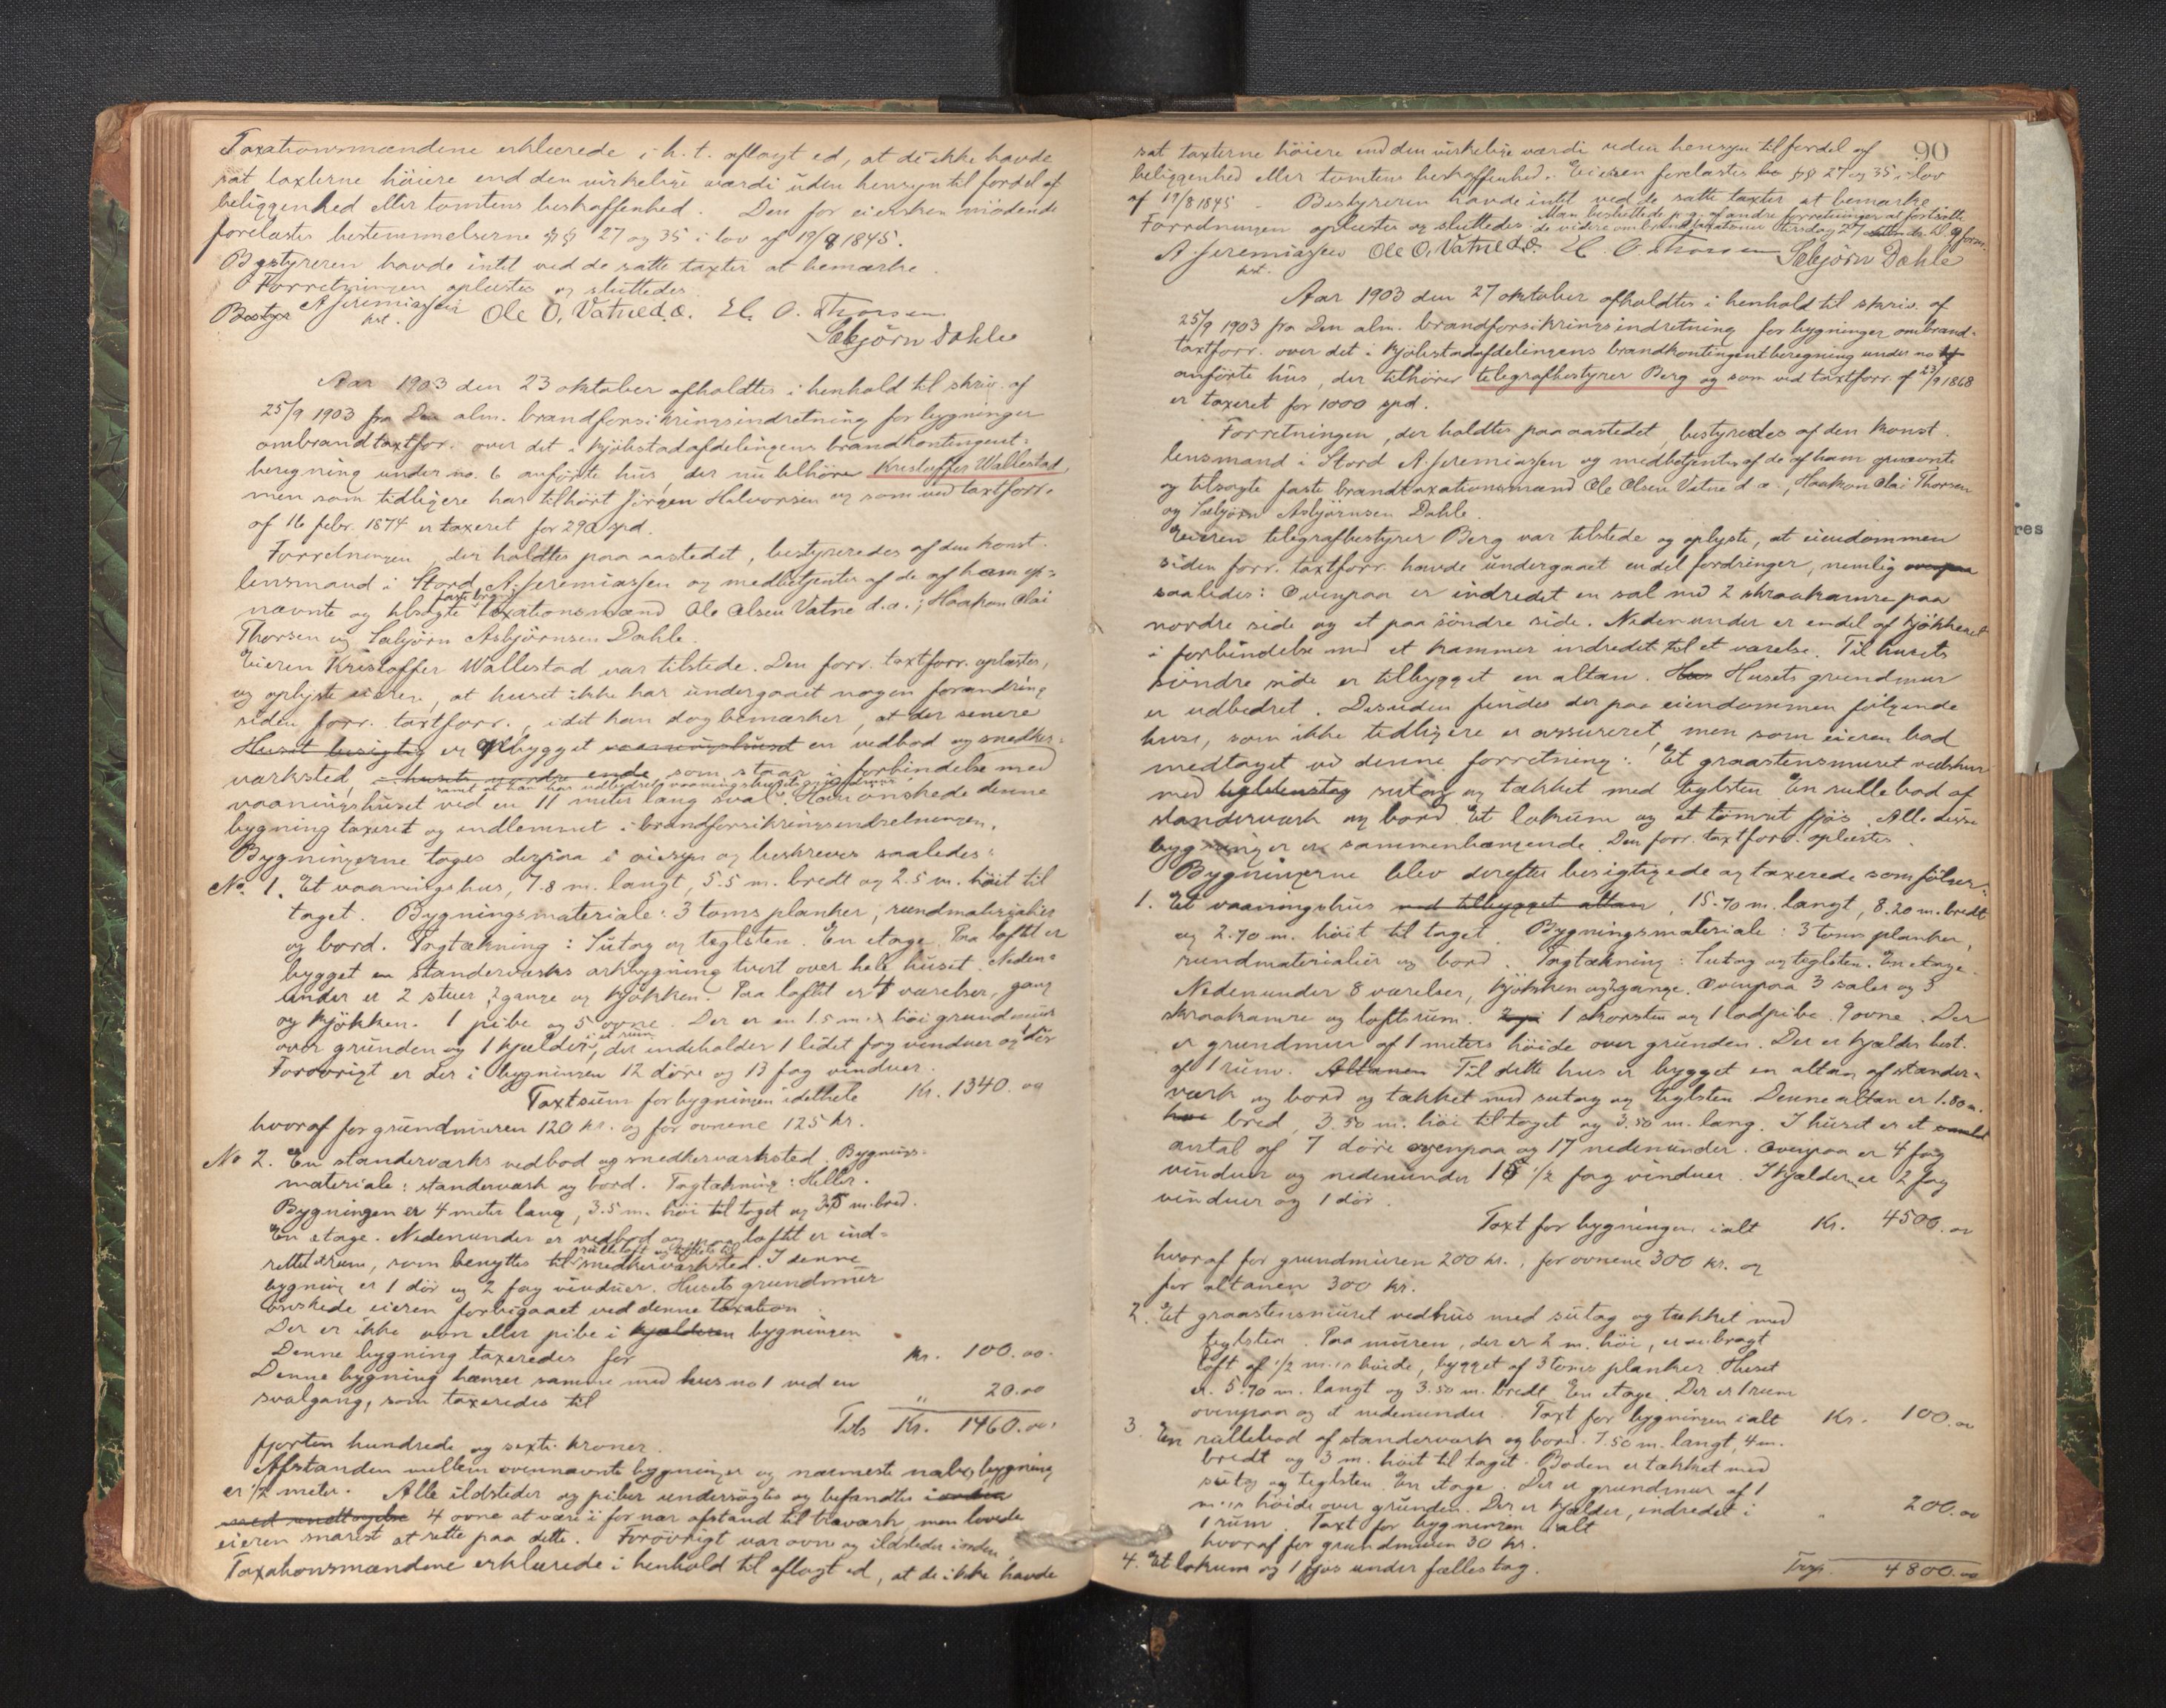 Taxationsmændene erklærede i h. t. aflagt ed, at de ikke havde
sat taxterne höiere end den virkelige værdi uden hensyn til fordel af
beliggenhed eller tomtens beskaffenhed. Den for eiersken mödende
forelæstes bestemmelserne §§ 27 og 35 i lov af 19/8 1845.
Bestyreren havde intet ved de satte taxter at bemærke.
Forretningen oplæstes og sluttedes
A Jeremiassen Ole O. Vatne d.æ. H. O. Thorsen
kst.
Sæbjörn Dahle
Aar 1903 den 23 oktober afholdtes i henhold til skriv. af
25/9 1903 fra Den alm. brandforsikringsindretning for bygninger
ombrandtaxtforr. over det i kjöbstadafdelingens brandkontingent-
beregning under no. 6 anförte hus, der nu tilhöre Kristoffer Wallestad,
men som tidligere har tilhört Jörgen Halvorsen og som ved taxtforr.
af 16 febr. 1874 er taxeret for 290 spd.
Forretningen, der holdtes paa aastedet, bestyreredes af den konst.
lensmand i Stord A. Jeremiassen og medbetjentes af de af ham op-
nævnte og tilsagte faste brand taxationsmænd Ole Olsen Vatne d.æ., Haakon Olai
Thorsen og Sæbjörn Asbjörnsen Dahle.
Eieren Kristoffer Wallestad var tilstede. Den forr. taxtforr. oplæstes,
og oplyste eieren, at huset ikke har undergaaet nogen forandring
siden forr. taxtforr., idet han dog bemærker, at der senere
Huset besigtig er tilbygget vaaningshuset en vedbod og snedker-
værksted, i husets nordre ende som staar i forbindelse med
samt at han har udbedret vaaningshusets grundmur
vaaningshuset ved en 11 meter lang sval. Han önskede denne
bygning taxeret og indlemmet i brandforsikringsindretningen.
Bygningerne toges derpaa i öiesyn og beskreves saaledes:
No. 1. Et vaaningshus, 7.8 m. langt, 5.5 m. bredt og 2.5 m. höit til
taget. Bygningsmateriale: 3 toms planker, rundmaterialier
og bord. Tagtækning: Sutag og teglsten. En etage. Paa loftet er
bygget en standerværks arkbygning tvert over hele huset. Neden-
under er 2 stuer, 2 gange og kjökken. Paa loftet er 4 værelser, gang
og kjökken. 1 pibe og 5 ovne. Der er en 1.5 m. höi grundmur
over grunden og 1 kjelder, et rum, der indeholder 1 lidet fag vinduer og dör
Forövrigt er der i bygningen 12 döre og 13 fag vinduer.
Taxtsum for bygningen idethele Kr. 1340.00
hvoraf for grundmuren 120 kr. og for ovnene 125 kr.
No 2. En standerværks vedbod og snedkerværksted. Bygnings-
materiale: standerværk og bord. Tagtækning: Heller.
Bygningen er 4 meter lang, 3.5 m. höi til taget og 3.5 m. bred.
En etage. Nedenunder er vedbod og paa loftet er ind-
rettet et rum, som benyttes til snedkerværksted. I denne
bygning er 1 dör og 2 fag vinduer. Husets grundmur
önskede eieren forbigaaet ved denne taxation.
Der er ikke ovn eller pibe i kjælderen bygningen
Denne bygning taxeredes for Kr. 100.00.
Denne bygning hænger sammen med hus no 1 ved en
svalgang, som taxeredes til " 20.00
Tils Kr. 1460.00.
fjorten hundrede og sexti kroner.
Afstanden mellem ovennævnte bygninger og nærmeste nabobygning
er 1/2 meter. Alle ildsteder og piber undersögtes og befandtes i orden
med undtagelse 4 ovne at være i for nær afstand til træværk, men lovede
eieren snarest at rette paa dette. Forövrigt var ovne og ildsteder i orden.
Taxationsmændene erklærede i henhold til aflagt ed, at de ikke havde
90
sat taxterne höiere end den virkelige værdi uden hensyn til fordel af
beliggenhed eller tomtens beskaffenhed. Eieren forelæstes §§ 27 og 35 i lov
af 19/8 1845. Bestyreren havde intet ved de satte taxter at bemærke
Forretningen oplæstes og sluttedes. Man besluttede p. g. af andre forretninger at fortsætte
de videre ombrandtaxationer tirsdag 27 oktober kl. 9 form.
A Jeremiassen Ole O. Vatne d.æ. H. O. Thorsen Sæbjörn Dahle
kst.
Aar 1903 den 27 oktober afholdtes i henhold til skriv. af
25/9 1903 fra Den alm. brandforsikringsindretning for bygninger ombrand-
taxtforr. over det i kjöbstadafdelingens brandkontingentberegning under no
anförte hus, der tilhörer telegrafbestyrer Berg og som ved taxtforr. af 23/9 1868
er taxeret for 1000 spd.
Forretningen, der holdtes paa aastedet, bestyredes af den konst.
lensmand i Stord A. Jeremiassen og medbetjentes af de af ham opnævnte
og tilsagte faste brandtaxationsmænd Ole Olsen Vatne d.æ., Haakon Olai Thorsen
og Sæbjörn Asbjörnsen Dahle.
Eieren telegrafbestyrer Berg var tilstede og oplyste, at eiendommen
siden forr. taxtforr. havde undergaaet endel fordringer, nemlig ovenpaa
saaledes: Ovenpaa er indredet en sal med 2 skraakamre paa
nordre side og et paa söndre side. Nedenunder er endel af kjökkenet
i forbindelse med et kammer indredet til et værelse. Til husets
söndre side er tilbygget en altan. Hus Husets grundmur
er udbedret. Desuden findes der paa eiendommen fölgende
huse, som ikke tidligere er assureret, men som eieren bad
medtaget ved denne forretning: Et graastensmuret vedskur
med teglstenstag sutag og tækket med teglsten En rullebod af
standerværk og bord Et lokum og et tömret fjös. Alle disse
bygninger er sammenhængende. Den forr. taxtforr. oplæstes.
Bygningerne blev derefter besigtigede og taxerede som fölger:
1. Et vaaningshus med tilbygget altan, 15.70 m. langt, 8.20 m. bredt
og 2.70 m. höit til taget. Bygningsmateriale: 3 toms planker,
rundmaterialier og bord. Tagtækning: Sutag og teglsten. En etage.
Nedenunder 8 værelser, kjökken og 2 gange. Ovenpaa 3 saler og 3
skraakamre og loftsrum. 1 skorsten og 1 lodpibe. 9 ovne. Der
er grundmur af 1 meters höide over grunden. Der er kjælder best.
af 1 rum. Altanen Til dette hus er bygget en altan af stander-
værk og bord og tækket med sutag og teglsten. Denne altan er 1.80 m.
höi bred, 3.50 m. höi til taget og 3.50 m. lang. I huset er et samlet
antal af 7 döre ovenpaa og 17 nedenunder. Ovenpaa er 4 fag
vinduer og nedenunder 15 1/2 fag vinduer. I kjælder er 2 fag
vinduer og 1 dör.
Taxt for bygningen ialt Kr. 4500.00
hvoraf for grundmuren 200 kr., for ovnene 300 kr. og
for altanen 300 kr.
2. Et graastensmuret vedhus med sutag og tækket med
teglsten. Paa muren, der er 2 m. höi, er anbragt
loft af 1/2 m.s höide, bygget af 3 toms planker. Huset
er 5.70 m. langt og 3.50 m. bredt. En etage. Der er 1 rum
ovenpaa og et nedenunder. Taxt for bygningen ialt Kr. 100.00
3. En rullebod af standerværk og bord. 7.50 m. langt, 4 m.
bredt og 3 m. höit til taget. Boden er tækket med
sutag og teglsten. En etage. Der er grundmur af 1
m.s höide over grunden. Der er kjælder, indredet i
1 rum. Taxt for bygningen ialt " 200.00
hvoraf for grundmuren 30 kr.
4. Et lokum og 1 fjös under fælles tag. Trsp. 4800.00
res